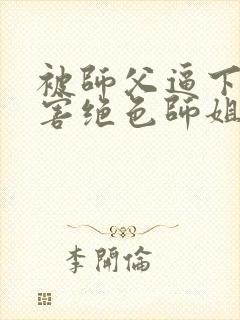 被師父逼下
害絶色師姐
李開倫